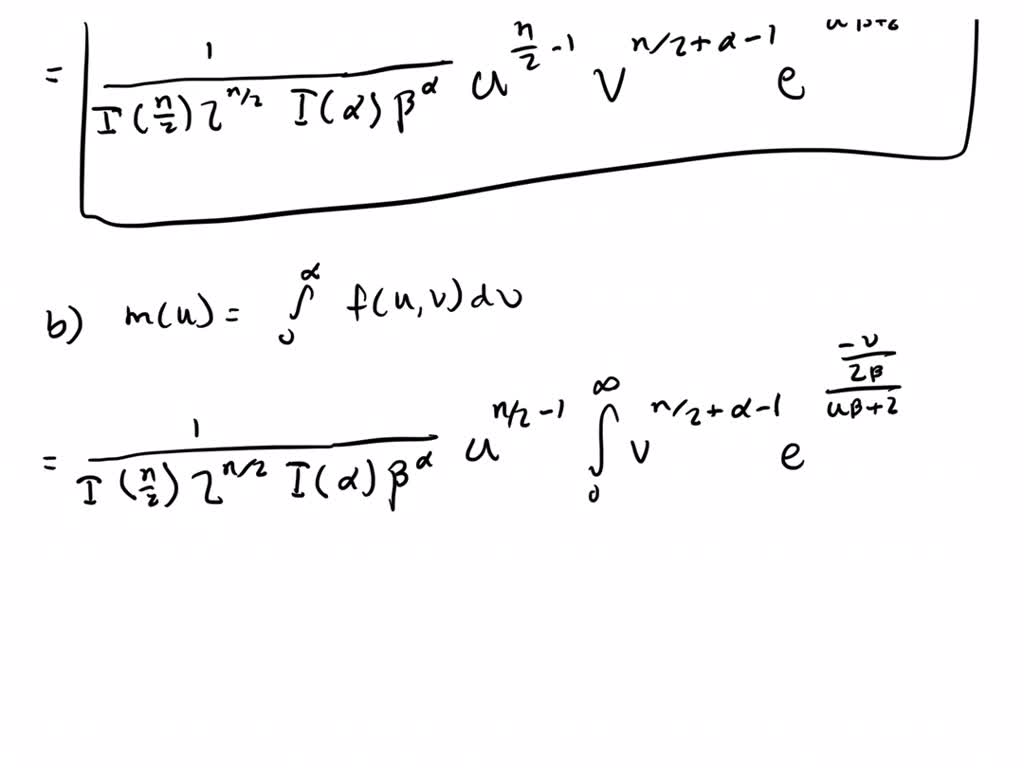 = 1 / (I(n/2) 2^(n/2) I(α) β^α) u^(n/2 -1) v^(n/2+α-1) e^(uβ+2)
b) m(u) = ∫_0^α f(u,v)dv
= 1 / (I(n/2) 2^(n/2) I(α) β^α) u^(n/2 -1) ∫_0^∞ v^(n/2+α-1) e^((-v/2β)/(uβ+2))